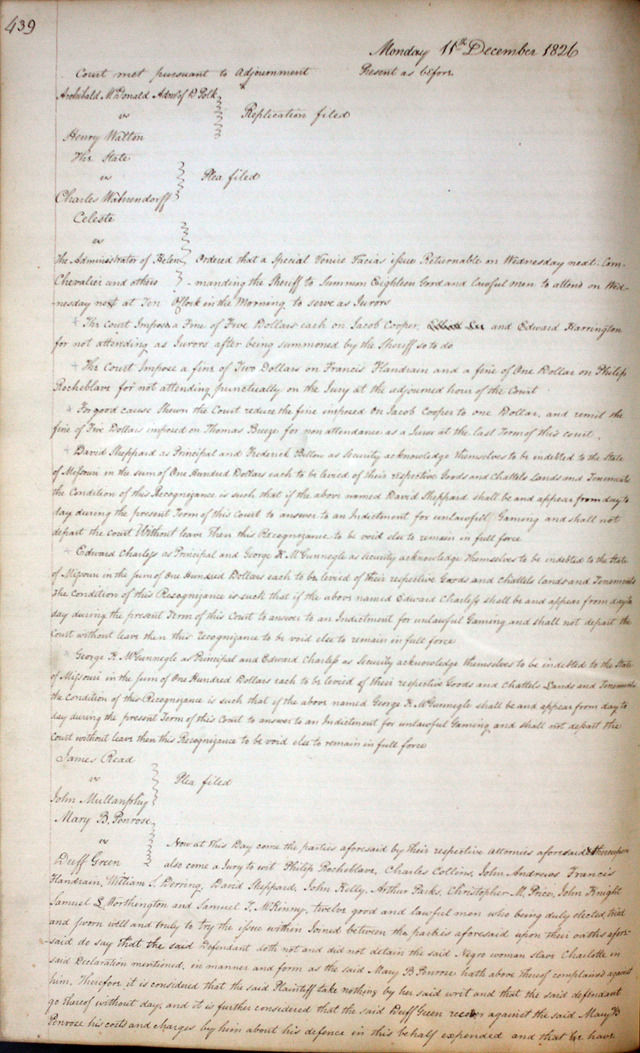 439
Monday 11th December 1826
Court met pursuant to Adjournment Present as before
Archibald McDonald Admr of D Polk
vs Replication filed
Henry Walton
The State
vs Plea filed
Charles Wahrendorff
Celeste
vs
The Administrator of Helen Ordered that a Special Venire Facias issue Returnable on Wednesday next. Com
Chevalier and others manding the Sheriff to Summon Eighteen Good and Lawful men to attend on Wed-
nesday next at Ten OClock in the Morning to serve as Jurors
The court Impose a Fine of Five Dollars each on Jacob Cooper, and Edward Harrington
for not attending as Jurors after being summoned by the Sheriff so to do
The Court Impose a fine of Two Dollars on Francis Handrain and a fine of One Dollar on Philip
Rocheblave for not attending punctually on the Jury at the adjourned hour of the Court
For good cause Shown the Court reduce the fine imposed on Jacob Cooper to one Dollar, and remit the
fine of Five Dollars imposed on Thomas for non attendance as a Juror at the last Term of this court.
David Sheppard as Principal and Frederick as Security acknowledge themselves to be indebted to the State
of Missouri in the sum of One Hundred Dollars each to be levied of their respective Goods and Chattels Lands and Tenements
the Condition of this Recognizance is such that if the above named David Sheppard shall be and appear from day to
day during the present Term of this Court to answer to an Indictment for unlawfull Gaming and shall not
depart the court Without leave Then this Recognizance to be void else to remain in full force
Edward Charless as Principal and George K McGunnegle as Security acknowledge themselves to be indebted to the State
of Missouri in the sum of One Hundred Dollars each to be levied of their respective Goods and Chattels lands and Tenements
The Condition of this Recognizance is such that if the above named Edward Charless shall be and appear from day to
day during the present Term of this Court to answer to an Indictment for unlawful Gaming and shall not depart the
Court without leave then this recognizance to be void else to remain in full force
George K. McGunnegle as Principal and Edward Charless as Security acknowledge themselves to be indebted to the State
of Missouri in the sum of One Hundred Dollars each to be levied of their respective Goods and Chattels Lands and Tenements
the Condition of this Recognizance is such that if the above named George K. McGunnegle shall be and appear from day to
day during the present Term of this Court to answer to an Indictment for unlawful Gaming and shall not depart the
Court without leave then this Recognizance to be void else to remain in full force
James Read
vs Plea filed
John Mullanphy
Mary B. Penrose
vs Now at this Day come the parties aforesaid by their respective Attornies aforesaid & thereupon
Duff Green also come a Jury to wit Philip Rocheblave, Charles Collins, John Andrews Francis
Handrain, William S. Derring, David Sheppard, John Kelly, Arthur Parks, Christopher M. Price, John Knight
Samuel S. Worthington and Samuel T. McKinny, twelve good and lawful men who being duly elected tried
and sworn well and truly to try the issue within Joined between the parties aforesaid upon their oaths afore
said do say that the said Defendant doth not and did not detain the said Negro woman slave Charlotte in
said Declaration mentioned, in manner and form as the said Mary B. Penrose hath above thereof complained against
him, Therefore it is considered that the said Plaintiff take nothing by her said writ and that the said defendant
go thereof without day, and it is further considered that the said Duff Green recover against the said Mary B
Penrose his costs and charges by him about his defence in this behalf expended and that he have